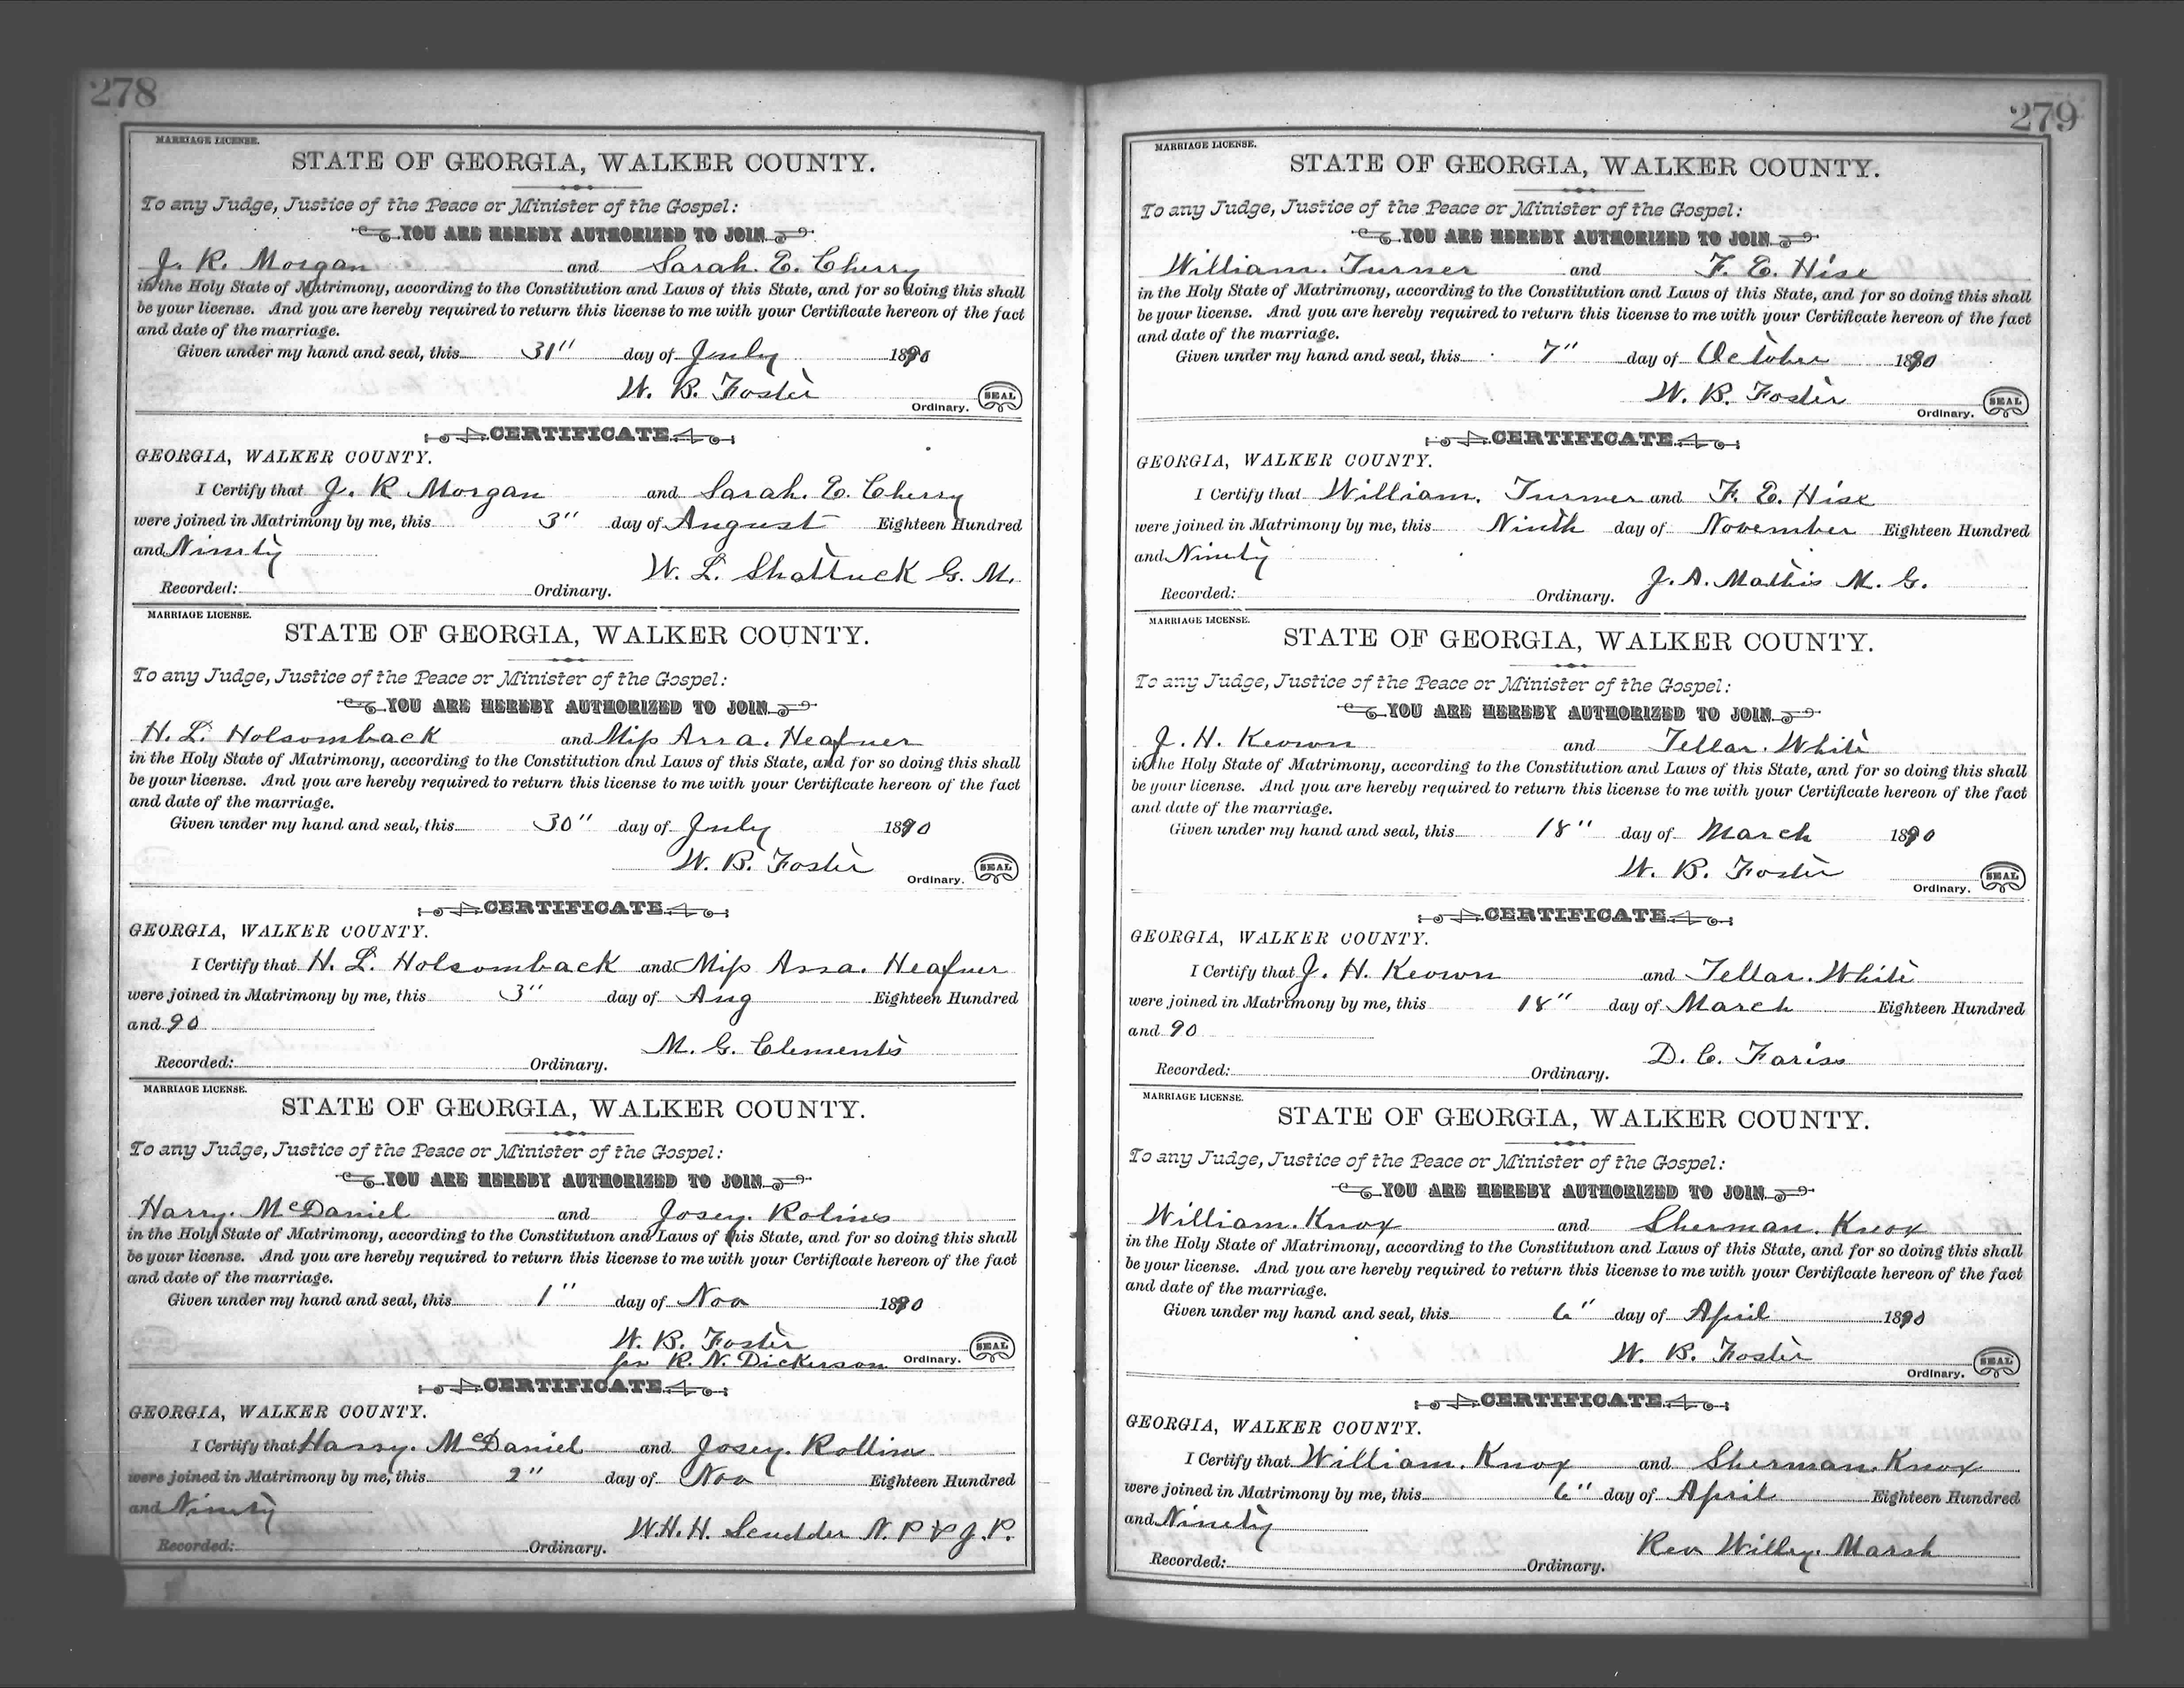 278
MARRIAGE LICENSE.
STATE OF GEORGIA, WALKER COUNTY.
To any Judge, Justice of the Peace or Minister of the Gospel:
YOU ARE HEREBY AUTHORIZED TO JOIN
J. R. Morgan and Sarah. E. Cherry
in the Holy State of Matrimony, according to the Constitution and Laws of this State, and for so doing this shall
be your license. And you are hereby required to return this license to me with your Certificate hereon of the fact
and date of the marriage.
Given under my hand and seal, this 31" day of July 1890
W. B. Foster
Ordinary. SEAL
CERTIFICATE
GEORGIA, WALKER COUNTY.
I Certify that J. R Morgan and Sarah. E. Cherry
were joined in Matrimony by me, this 3" day of August Eighteen Hundred
and Ninety
W. L. Shattuck G. M.
Recorded: Ordinary.
MARRIAGE LICENSE.
STATE OF GEORGIA, WALKER COUNTY.
To any Judge, Justice of the Peace or Minister of the Gospel:
YOU ARE HEREBY AUTHORIZED TO JOIN
H. L. Holsomback and Miss Arra. Heafner
in the Holy State of Matrimony, according to the Constitution and Laws of this State, and for so doing this shall
be your license. And you are hereby required to return this license to me with your Certificate hereon of the fact
and date of the marriage.
Given under my hand and seal, this 30" day of July 1890
W. B. Foster
Ordinary. SEAL
CERTIFICATE
GEORGIA, WALKER COUNTY.
I Certify that H. L. Holsomback and Miss Arra. Heafner
were joined in Matrimony by me, this 3" day of Aug Eighteen Hundred
and 90
M. G. Clements
Recorded: Ordinary.
MARRIAGE LICENSE.
STATE OF GEORGIA, WALKER COUNTY.
To any Judge, Justice of the Peace or Minister of the Gospel:
YOU ARE HEREBY AUTHORIZED TO JOIN
Harry. McDaniel and Josey. Rolins
in the Holy State of Matrimony, according to the Constitution and Laws of this State, and for so doing this shall
be your license. And you are hereby required to return this license to me with your Certificate hereon of the fact
and date of the marriage.
Given under my hand and seal, this 1" day of Nov 1890
W. B. Foster
per R. N. Dickerson Ordinary. SEAL
CERTIFICATE
GEORGIA, WALKER COUNTY.
I Certify that Harry. McDaniel and Josey. Rollins
were joined in Matrimony by me, this 2" day of Nov Eighteen Hundred
and Ninety
W.H.H. Scudder N. P & J. P.
Recorded: Ordinary.
279
MARRIAGE LICENSE.
STATE OF GEORGIA, WALKER COUNTY.
To any Judge, Justice of the Peace or Minister of the Gospel:
YOU ARE HEREBY AUTHORIZED TO JOIN
William. Turner and F. E. Hise
in the Holy State of Matrimony, according to the Constitution and Laws of this State, and for so doing this shall
be your license. And you are hereby required to return this license to me with your Certificate hereon of the fact
and date of the marriage.
Given under my hand and seal, this 7" day of October 1890
W. B. Foster
Ordinary. SEAL
CERTIFICATE
GEORGIA, WALKER COUNTY.
I Certify that William. Turner and F. E. Hise
were joined in Matrimony by me, this Ninth day of November Eighteen Hundred
and Ninety
J. A. Mathis M. G.
Recorded: Ordinary.
MARRIAGE LICENSE.
STATE OF GEORGIA, WALKER COUNTY.
To any Judge, Justice of the Peace or Minister of the Gospel:
YOU ARE HEREBY AUTHORIZED TO JOIN
J. H. Keown and Tellar. White
in the Holy State of Matrimony, according to the Constitution and Laws of this State, and for so doing this shall
be your license. And you are hereby required to return this license to me with your Certificate hereon of the fact
and date of the marriage.
Given under my hand and seal, this 18" day of March 1890
W. B. Foster
Ordinary. SEAL
CERTIFICATE
GEORGIA, WALKER COUNTY.
I Certify that J. H. Keown and Tellar. White
were joined in Matrimony by me, this 18" day of March Eighteen Hundred
and 90
D. C. Fariss
Recorded: Ordinary.
MARRIAGE LICENSE.
STATE OF GEORGIA, WALKER COUNTY.
To any Judge, Justice of the Peace or Minister of the Gospel:
YOU ARE HEREBY AUTHORIZED TO JOIN
William. Knox and Sherman. Knox
in the Holy State of Matrimony, according to the Constitution and Laws of this State, and for so doing this shall
be your license. And you are hereby required to return this license to me with your Certificate hereon of the fact
and date of the marriage.
Given under my hand and seal, this 6" day of April 1890
W. B. Foster
Ordinary. SEAL
CERTIFICATE
GEORGIA, WALKER COUNTY.
I Certify that William. Knox and Sherman. Knox
were joined in Matrimony by me, this 6" day of April Eighteen Hundred
and Ninety
Rev Willey. Marsh
Recorded: Ordinary.